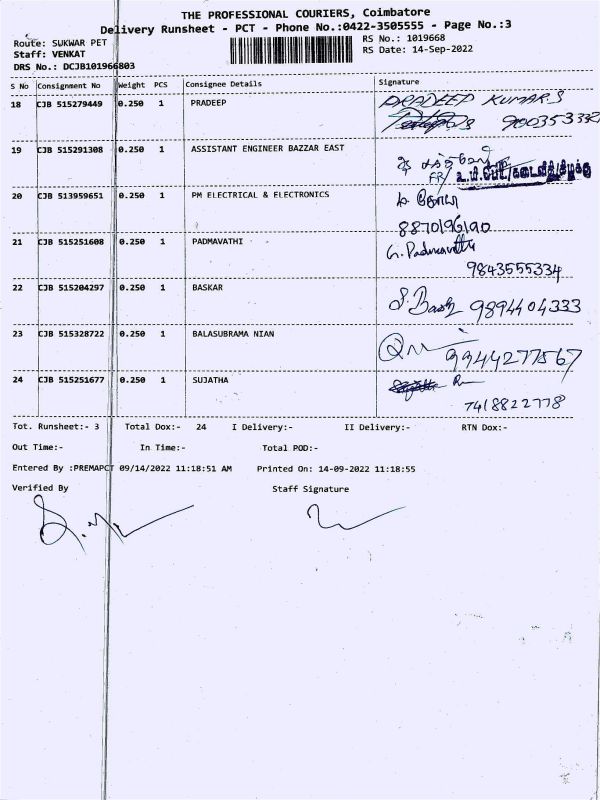 THE PROFESSIONAL COURIERS, Coimbatore
Delivery Runsheet - PCT - Phone No.:0422-3505555 - Page No.:3
Route: SUKWAR PET
RS No.: 1019668
Staff: VENKAT
RS Date: 14-Sep-2022
DRS No.: DCJB101966803
S No Consignment No Weight PCS Consignee Details Signature
18 CJB 515279449 0.250 1 PRADEEP PRADEEP KUMAR.S
19 CJB 515291308 0.250 1 ASSISTANT ENGINEER BAZZAR EAST
20 CJB 513959651 0.250 1 PM ELECTRICAL & ELECTRONICS
8870196190
21 CJB 515251608 0.250 1 PADMAVATHI G. Padmavathi
9843555334
22 CJB 515204297 0.250 1 BASKAR 9894404333
23 CJB 515328722 0.250 1 BALASUBRAMA NIAN 9944277567
24 CJB 515251677 0.250 1 SUJATHA
7418822778
Tot. Runsheet:- 3 Total Dox:- 24 I Delivery:- II Delivery:- RTN Dox:-
Out Time:- In Time:- Total POD:-
Entered By :PREMAPCT 09/14/2022 11:18:51 AM Printed On: 14-09-2022 11:18:55
Verified By Staff Signature